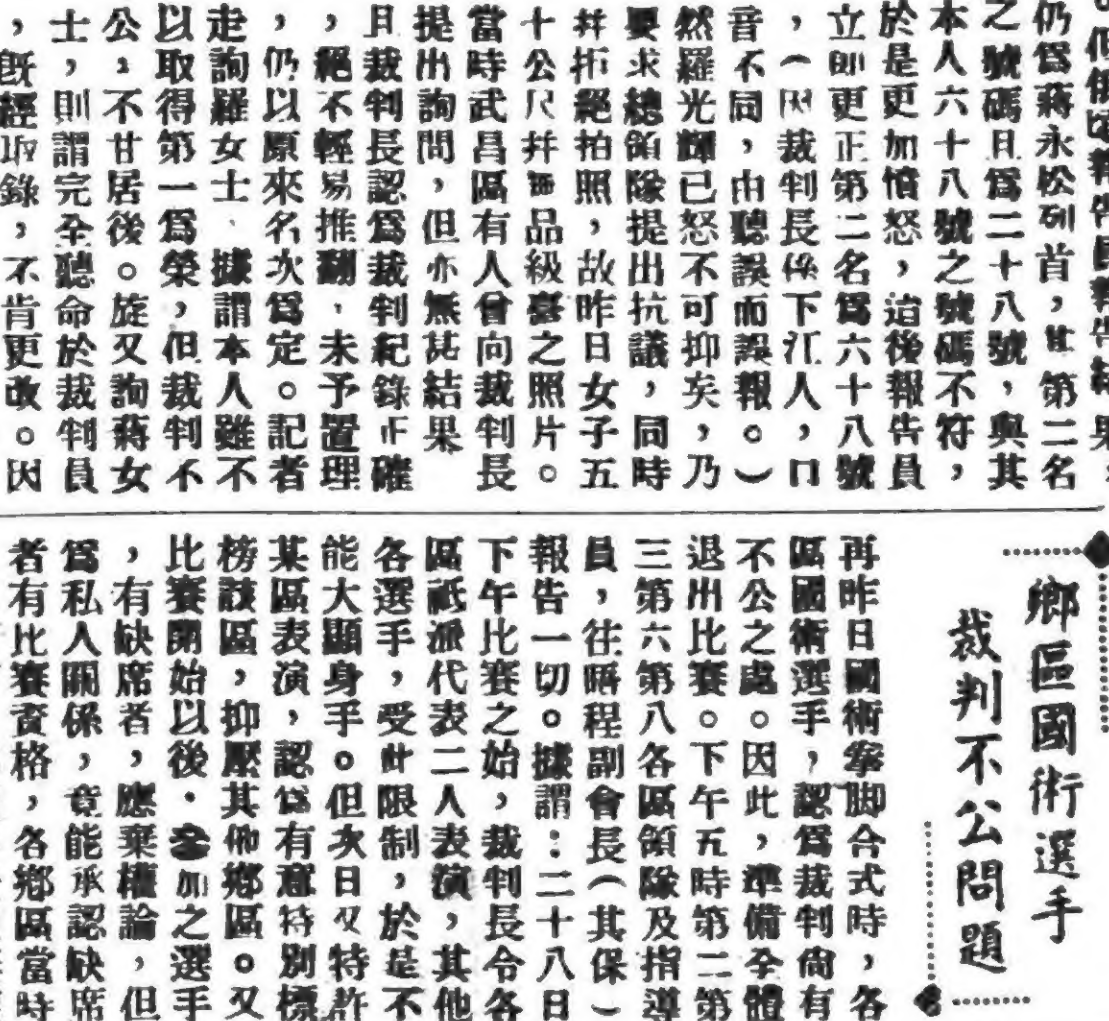 仍爲蔣永松列首，其第二名
之號碼且爲二十八號，與其
本人六十八號之號碼不符，
於是更加憤怒，迨後報告員
立即更正第二名爲六十八號
，（因裁判長係下江人，口
音不同，由聽誤而誤報。）
然羅光輝已怒不可抑矣，乃
要求總領隊提出抗議，同時
幷拒絕拍照，故昨日女子五
十公尺幷無品級臺之照片。
當時武昌區有人曾向裁判長
提出詢問，但亦無甚結果
且裁判長認爲裁判紀錄正確
，絕不輕易推翻，未予置理
，仍以原來名次爲定。記者
走詢羅女士、據謂本人雖不
以取得第一爲榮，但裁判不
公，不甘居後。旋又詢蔣女
士，則謂完全聽命於裁判員
，旣經取錄，不肯更改。因
鄉區國術選手
裁判不公問題
再昨日國術拳脚合式時，各
區國術選手，認爲裁判尙有
不公之處。因此，準備全體
退出比賽。下午五時第二第
三第六第八各區領隊及指導
員，往晤程副會長（其保）
報告一切。據謂：二十八日
下午比賽之始，裁判長令各
區祇派代表二人表演，其他
各選手，受此限制，於是不
能大顯身手。但次日又特許
某區表演，認爲有意特別標
榜該區，抑壓其他鄉區。又
比賽開始以後，參加之選手
，有缺席者，應棄權論，但
爲私人關係，竟能承認缺席
者有比賽資格，各鄉區當時